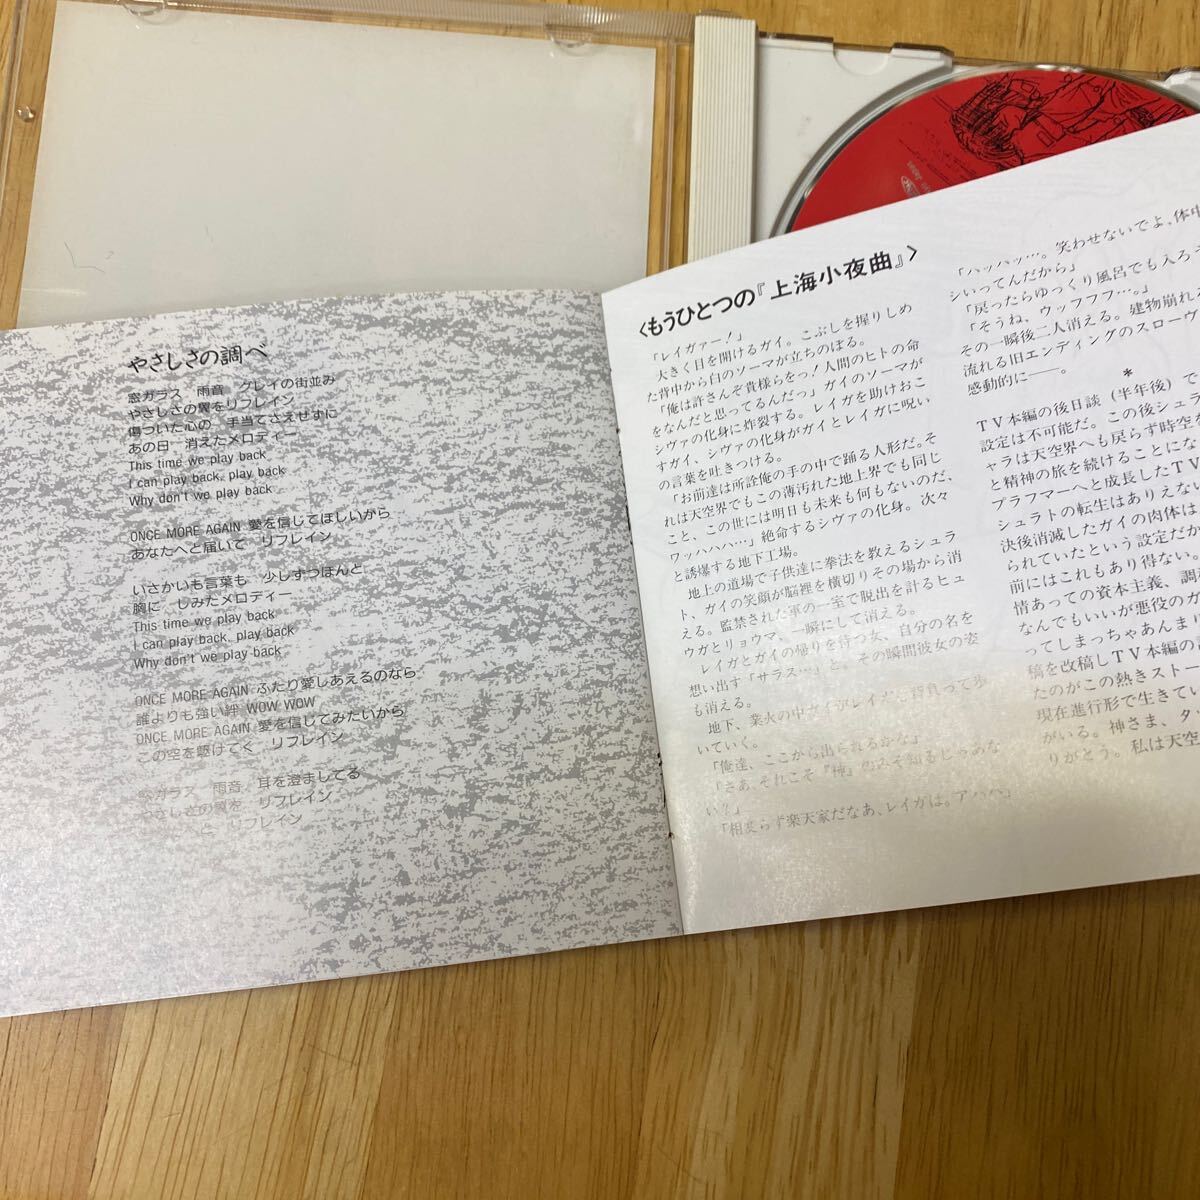 やさしさの調べ
窓ガラス 雨音 グレイの街並み
やさしさの翼をリフレイン
傷ついた心の 手当てさえせずに
あの日 消えたメロディー
This time we play back
I can play back, play back
Why don't we play back
ONCE MORE AGAIN 愛を信じてほしいから
あなたへと届いて リフレイン
いさかいも言葉も 少しずつほんと
胸に しみたメロディー
This time we play back
I can play back, play back
Why don't we play back
ONCE MORE AGAIN ふたり愛しあえるのなら
誰よりも強い絆 WOW WOW
ONCE MORE AGAIN 愛を信じてみたいから
この空を駆けてく リフレイン
窓ガラス 雨音 耳を澄ましてる
やさしさの翼を リフレイン
へと リフレイン
〈もうひとつの『上海小夜曲』〉
「レイガァー!」
大きく目を開けるガイ。こぶしを握りしめ
た背中から白のソーマが立ちのぼる。
「俺は許さんぞ貴様らをっ!人間のヒトの命
をなんだと思ってるんだっ」ガイのソーマが
シヴァの化身に炸裂する。レイガを助けおこ
すガイ、シヴァの化身がガイとレイガに呪い
の言葉を吐きつける。
「お前達は所詮俺の手の中で踊る人形だ。そ
れは天空界でもこの薄汚れた地上界でも同じ
こと、この世には明日も未来も何もないのだ、
ワッハハハ…」絶命するシヴァの化身。次々
と誘爆する地下工場。
地上の道場で子供達に拳法を教えるシュラ
ト、ガイの笑顔が脳裡を横切りその場から消
える。監禁された軍の一室で脱出を計るヒュ
ウガとリョウマ、一瞬にして消える。
レイガとガイの帰りを待つ女、自分の名を
想い出す「サラス…」と。その瞬間彼女の姿
も消える。
地下、業火の中ガイがレイガを背負って歩
いていく。
「俺達、ここから出られるかな」
「さあ、それこそ『神』のみぞ知るじゃあな
い?」
「相変らず楽天家だなあ、レイガは。アハハ」
「ハッハッ…。笑わせないでよ、体中
シいってんだから」
「戻ったらゆっくり風呂でも入ろう
「そうね、ウッフフフ…。」
その一瞬後二人消える。建物崩れ
流れる旧エンディングのスローヴ
感動的に――。
*
TV本編の後日談(半年後)で
設定は不可能だ。この後シュラ
ャラは天空界へも戻らず時空を
と精神の旅を続けることにな
ブラフマーへと成長したTV
シュラトの転生はありえない
決後消滅したガイの肉体は
られていたという設定だか
前にはこれもあり得ない。
情あっての資本主義、調
なんでもいいが悪役のガ
ってしまっちゃあんまり
稿を改稿しTV本編の
たのがこの熱きストー
現在進行形で生きてい
がいる。神さま、タ
りがとう。私は天空